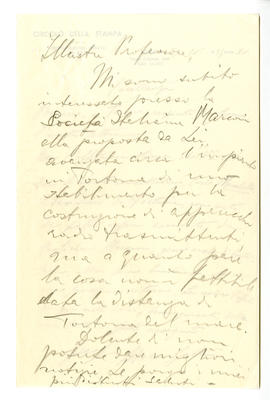 CIRCOLO DELLA STAMPA
Illustre Professore,
Mi sono subito
interessato presso la
Società Italiana Marconi
alla proposta da Lei
avanzata circa l'impianto
in Tortona di uno
stabilimento per la
costruzione di apparecchi
radio trasmittenti,
ma a quanto pare
la cosa non è fattibile
data la distanza di
Tortona dal mare.
Dolente di non
poterle dare migliori
notizie Le porgo i miei
più distinti saluti